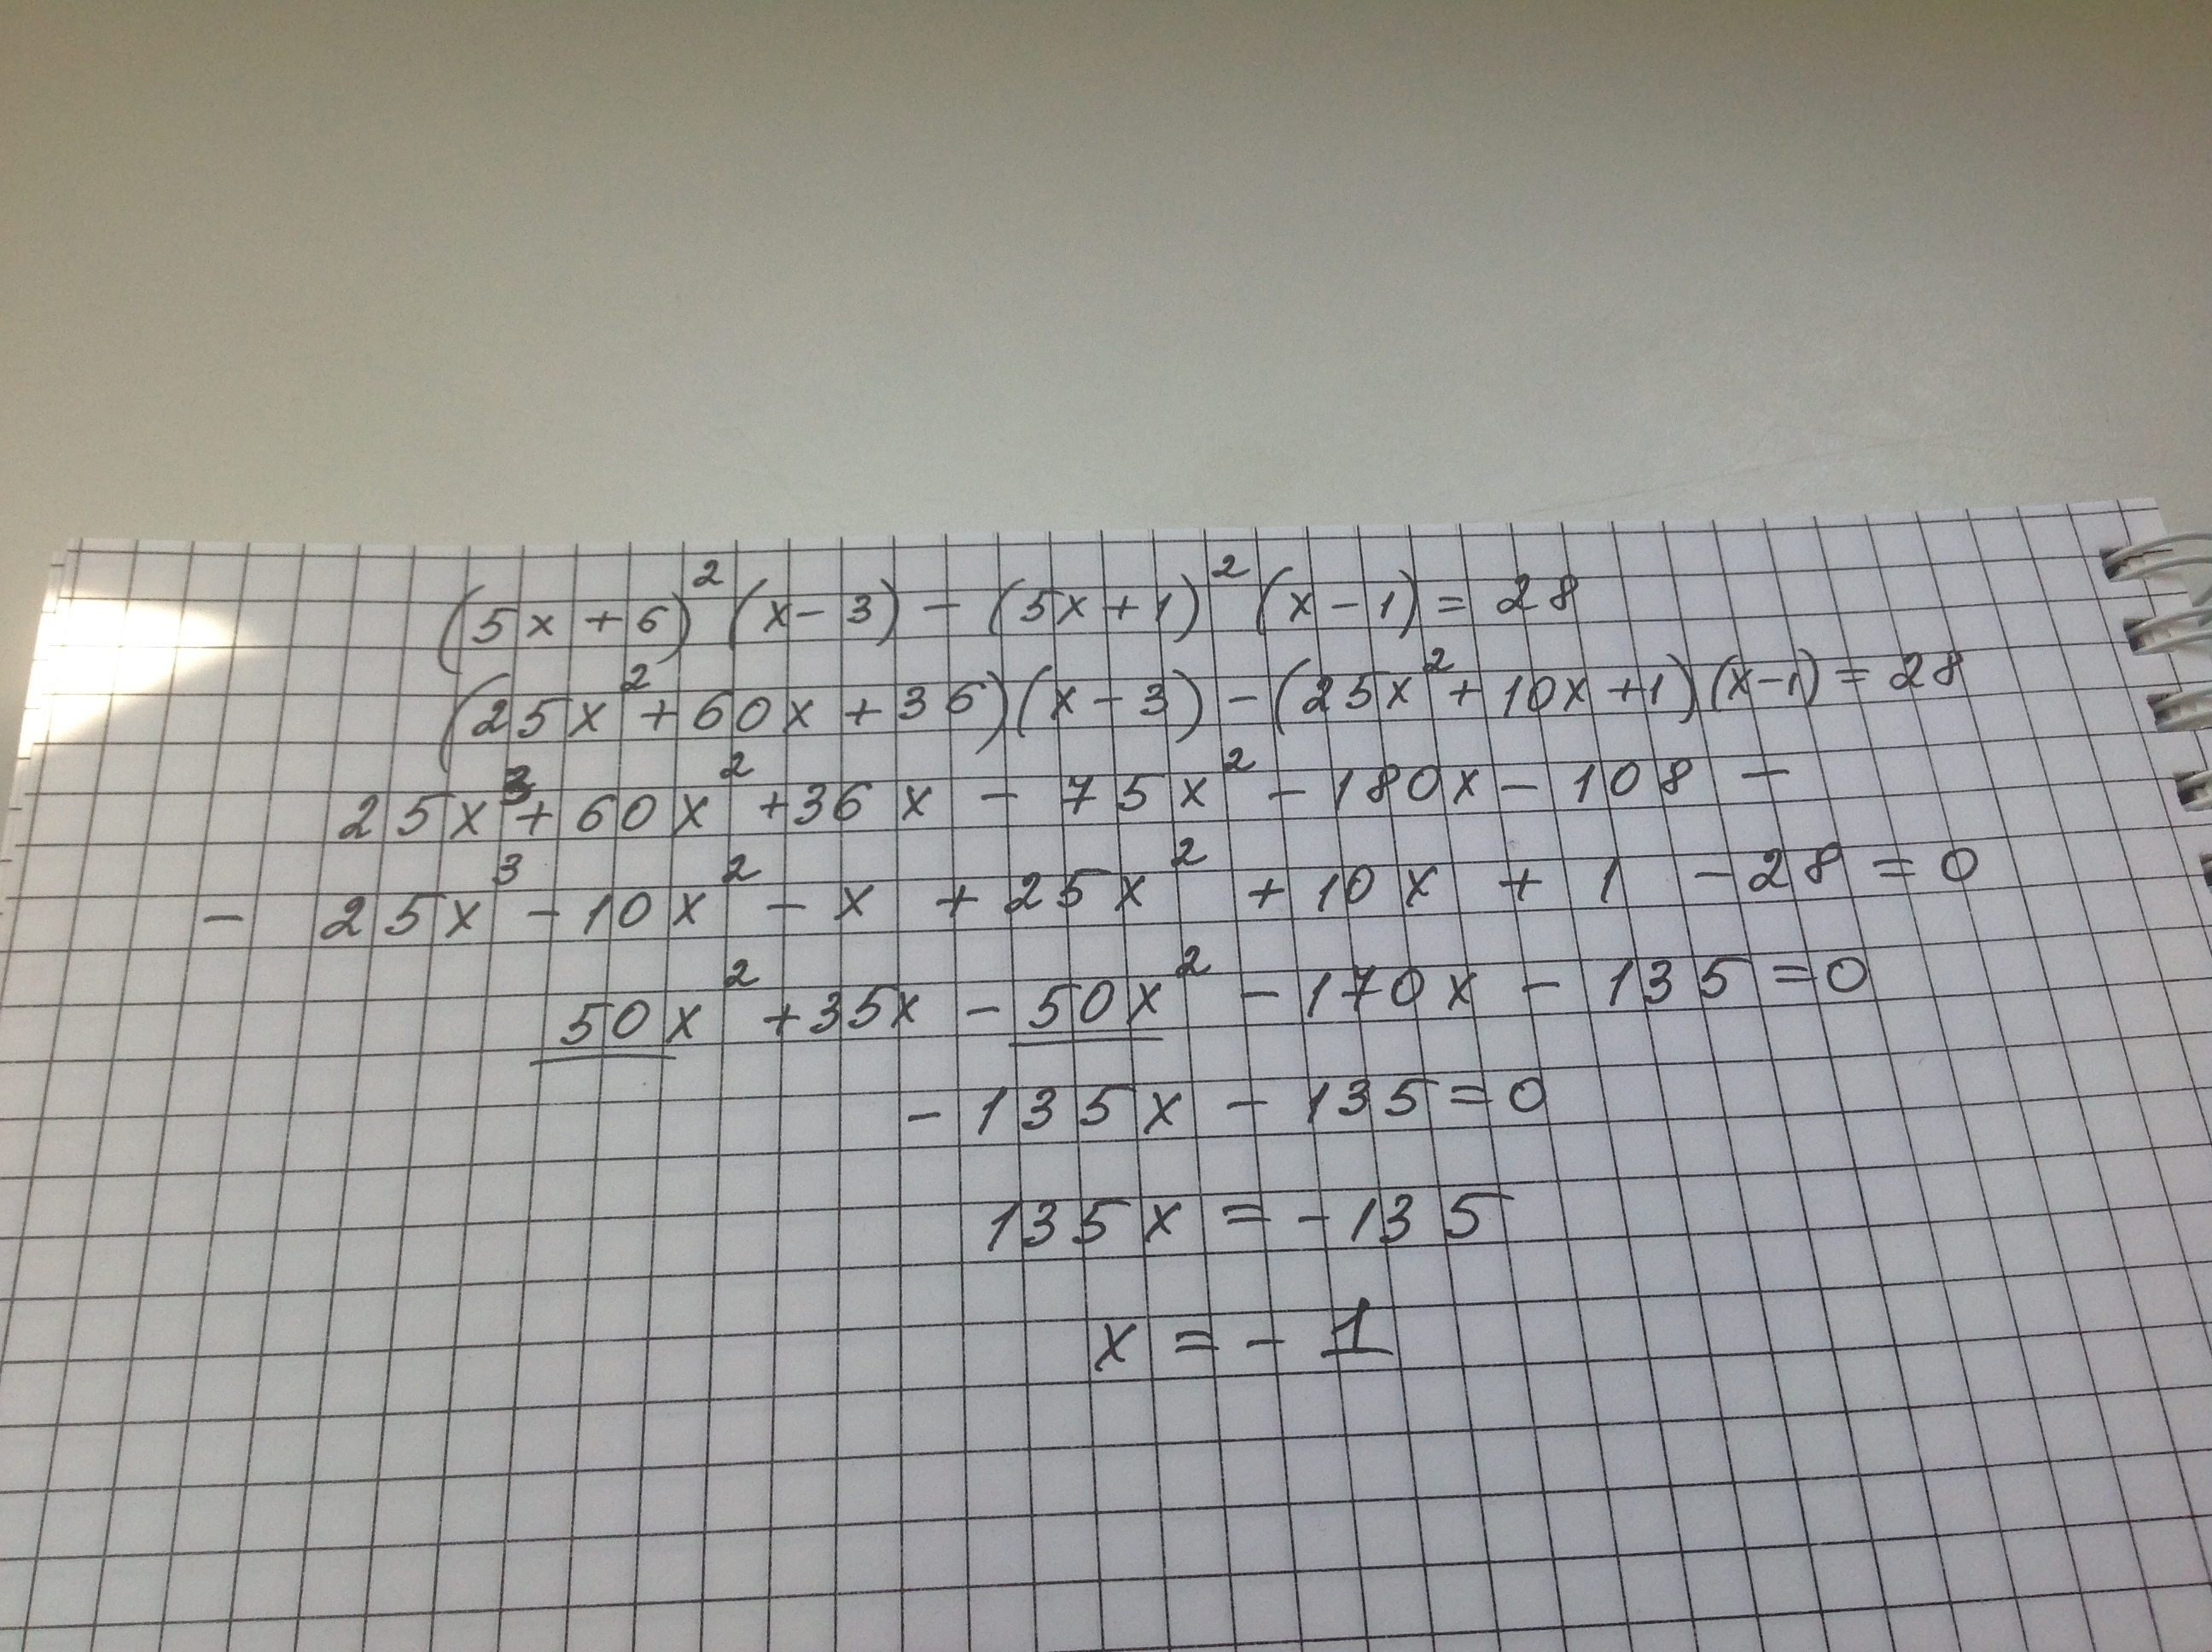 (5x+6)²(x-3)-(5x+1)²(x-1)=28
(25x²+60x+36)(x-3)-(25x²+10x+1)(x-1)=28
25x³+60x²+36x-75x²-180x-108-
-25x³-10x²-x+25x²+10x+1-28=0
50x²+35x-50x²-170x-135=0
-135x-135=0
135x=-135
x=-1